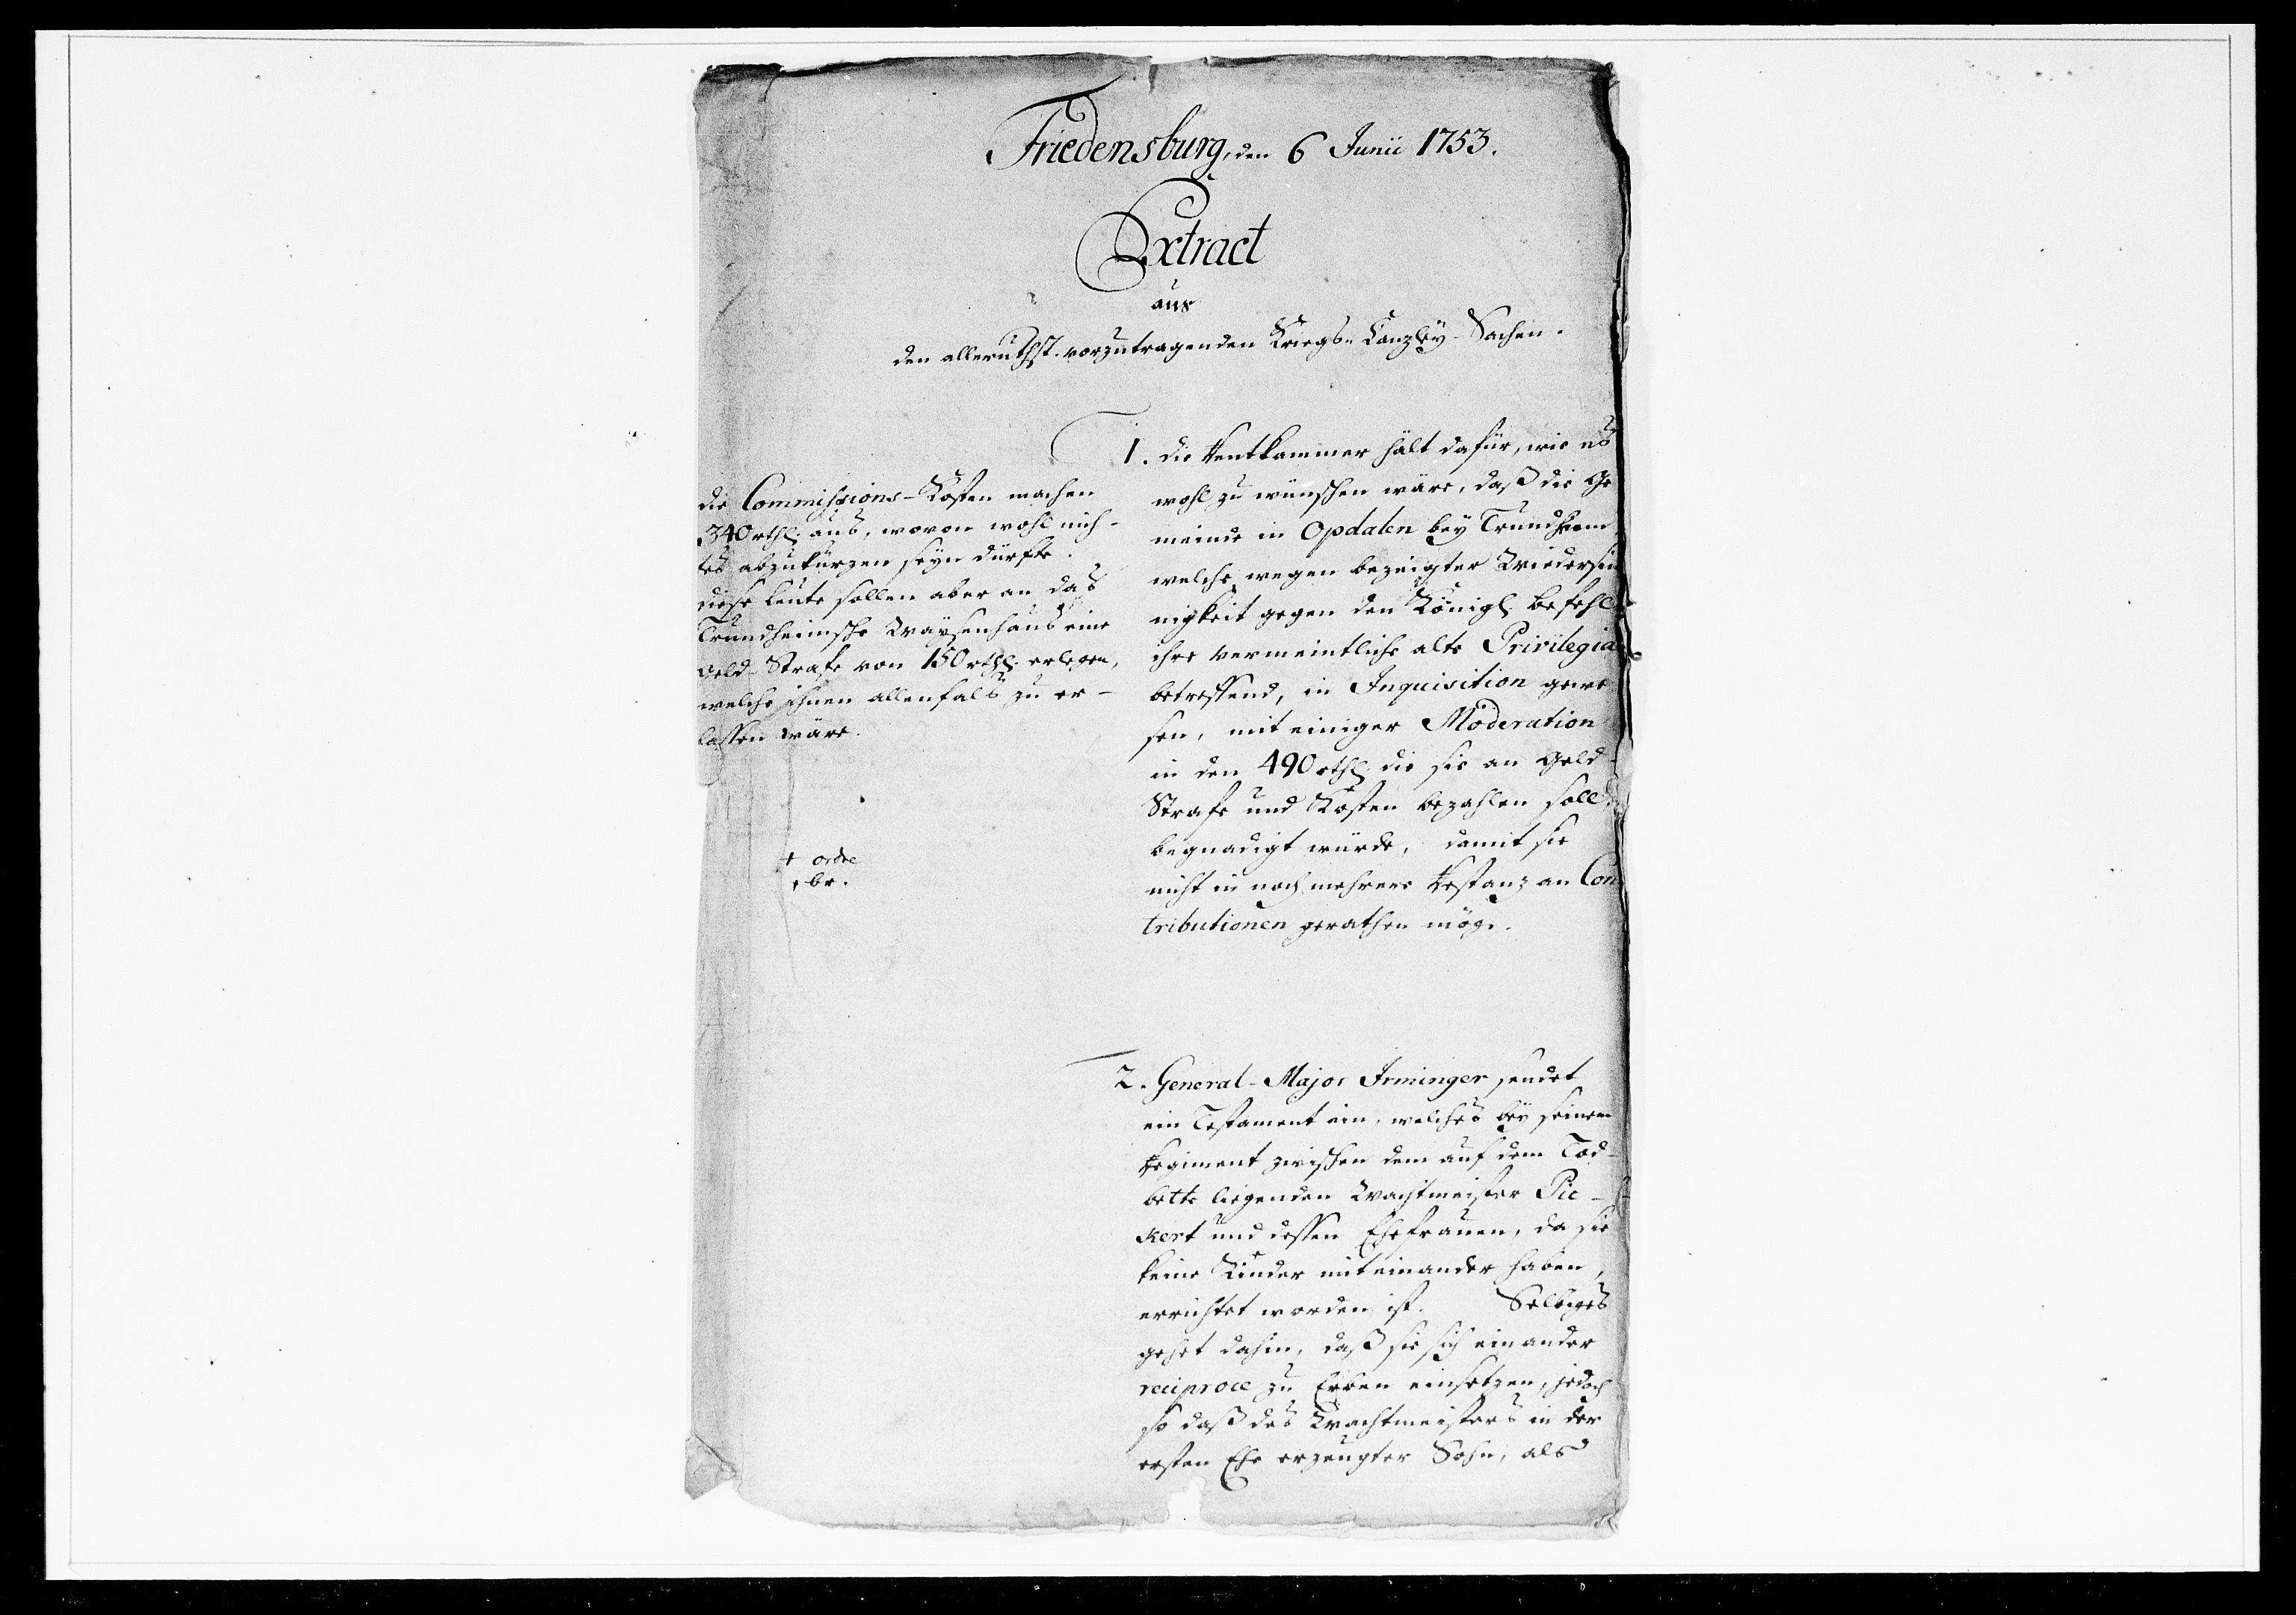 Friedensburg, den 6 Junii 1753.
Extract
aus
den allerunthst. vorzutragenden Kriegs-Canzley-Sachen.
1. die Rentkammer hält dafür, wie es
wohl zu wünschen wäre, daß die Ge
meinde in Opdalen bey Trundheim
welche wegen bezeigter Wiedersin
nigkeit gegen den Königl. Befehl
ihre vermeintliche alte Privilegia
betreffend, in Inquisition gewe
sen, mit einiger Moderation
in den 490 rthl. die sie an Geld-
Strafe und Kosten bezahlen soll
begnadigt würde, damit sie
nicht in noch mehrere Restanz an Con
tributionen gerathen möge.
die Commissions-Kosten machen
340 rthl. aus, wovon wohl nich-
tes abzukürzen seyn dürfte.
diese Leute sollen aber an das
Trundheimsche Waysenhaus eine
Geld-Strafe von 150 rthl. erlegen,
welche ihnen allenfals zu er-
lassen wäre.
+ ordre
br.
2. General-Major Irminger sendet
ein Testament ein, welches bey seinem
Regiment zwischen dem auf dem Tod-
bette liegenden Wachtmeister Pie-
kert und dessen Ehefrauen, da sie
keine Kinder mit einander haben,
errichtet worden ist. Selbiges
gehet dahin, daß sie sich einander
reciproce zu Erben einsetzen, jedoch
so daß des Wachtmeisters in der
ersten Ehe erzeugter Sohn, als